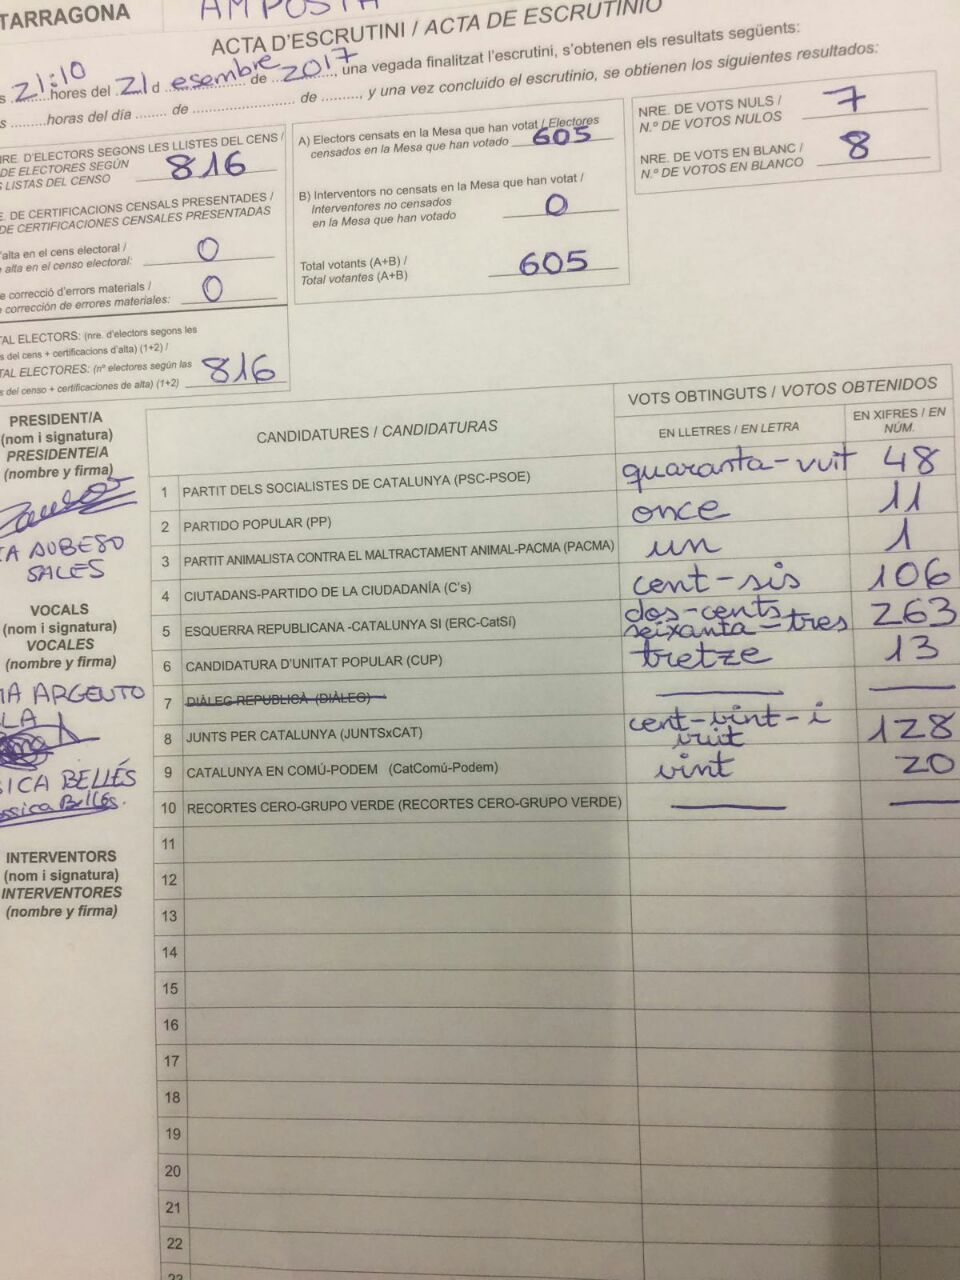 TARRAGONA AMPOSTA
ACTA D'ESCRUTINI / ACTA DE ESCRUTINIO
s 21:10 hores del 21 d esembre de 2017, una vegada finalitzat l'escrutini, s'obtenen els resultats següents:
s .........horas del día ........ de ........................ de ........., y una vez concluido el escrutinio, se obtienen los siguientes resultados:
NRE. D'ELECTORS SEGONS LES LLISTES DEL CENS /
DE ELECTORES SEGÚN
S LISTAS DEL CENSO 816
E. DE CERTIFICACIONS CENSALS PRESENTADES /
DE CERTIFICACIONES CENSALES PRESENTADAS
'alta en el cens electoral /
e alta en el censo electoral: 0
e correcció d'errors materials /
e corrección de errores materiales: 0
TAL ELECTORS: (nre. d'electors segons les
s del cens + certificacions d'alta) (1+2) /
TAL ELECTORES: (nº electores según las
s del censo + certificaciones de alta) (1+2) 816
A) Electors censats en la Mesa que han votat / Electores
censados en la Mesa que han votado 605
B) Interventors no censats en la Mesa que han votat /
Interventores no censados
en la Mesa que han votado 0
Total votants (A+B) /
Total votantes (A+B) 605
NRE. DE VOTS NULS /
N.º DE VOTOS NULOS 7
NRE. DE VOTS EN BLANC /
N.º DE VOTOS EN BLANCO 8
PRESIDENT/A
(nom i signatura)
PRESIDENTE/A
(nombre y firma)
SUBESO
SALES
VOCALS
(nom i signatura)
VOCALES
(nombre y firma)
MA ARGENTO
LA
SICA BELLÉS
essica Bellés.
INTERVENTORS
(nom i signatura)
INTERVENTORES
(nombre y firma)
CANDIDATURES / CANDIDATURAS
VOTS OBTINGUTS / VOTOS OBTENIDOS
EN LLETRES / EN LETRA
EN XIFRES / EN
NÚM.
1 PARTIT DELS SOCIALISTES DE CATALUNYA (PSC-PSOE) quaranta-vuit 48
2 PARTIDO POPULAR (PP) once 11
3 PARTIT ANIMALISTA CONTRA EL MALTRACTAMENT ANIMAL-PACMA (PACMA) un 1
4 CIUTADANS-PARTIDO DE LA CIUDADANÍA (C's) cent-sis 106
5 ESQUERRA REPUBLICANA -CATALUNYA SI (ERC-CatSí) dos-cents
seixanta-tres 263
6 CANDIDATURA D'UNITAT POPULAR (CUP) tretze 13
7 DIÀLEG REPUBLICÀ (DIÀLEG)
8 JUNTS PER CATALUNYA (JUNTSxCAT) cent-vint-i
vuit 128
9 CATALUNYA EN COMÚ-PODEM (CatComú-Podem) vint 20
10 RECORTES CERO-GRUPO VERDE (RECORTES CERO-GRUPO VERDE)
11
12
13
14
15
16
17
18
19
20
21
22
23